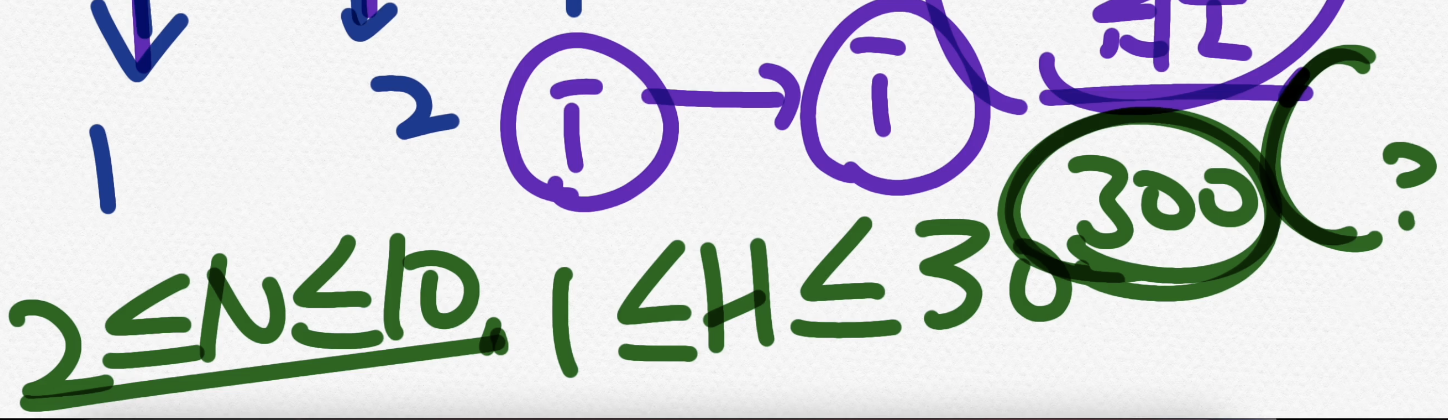 2 T → T
1 300 ( ?
2 ≤ N ≤ 10, 1 ≤ H ≤ 30